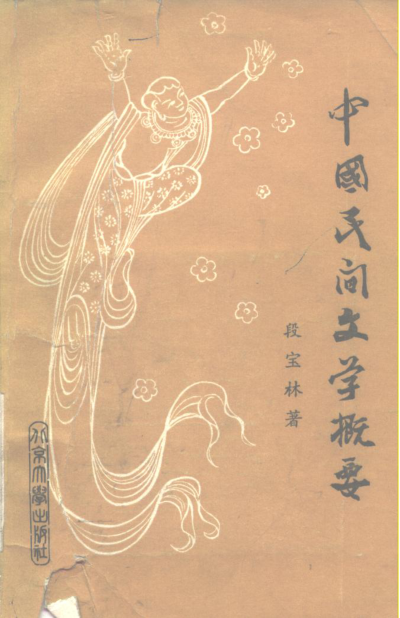 中國民间文学概要
段宝林著
北京大學出版社